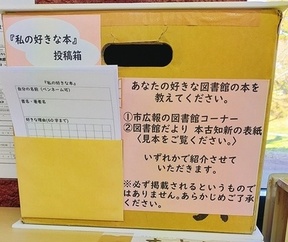 『私の好きな本』
投稿箱
『私の好きな本』
自分の名前（ペンネーム可）
書名・著者名
好きな理由(60字まで)
あなたの好きな図書館の本を
教えてください。
①市広報の図書館コーナー
②図書館だより 本古知新の表紙
〈見本をご覧ください。〉
いずれかで紹介させて
いただきます。
※必ず掲載されるというもので
はありません。あらかじめご了承
ください。